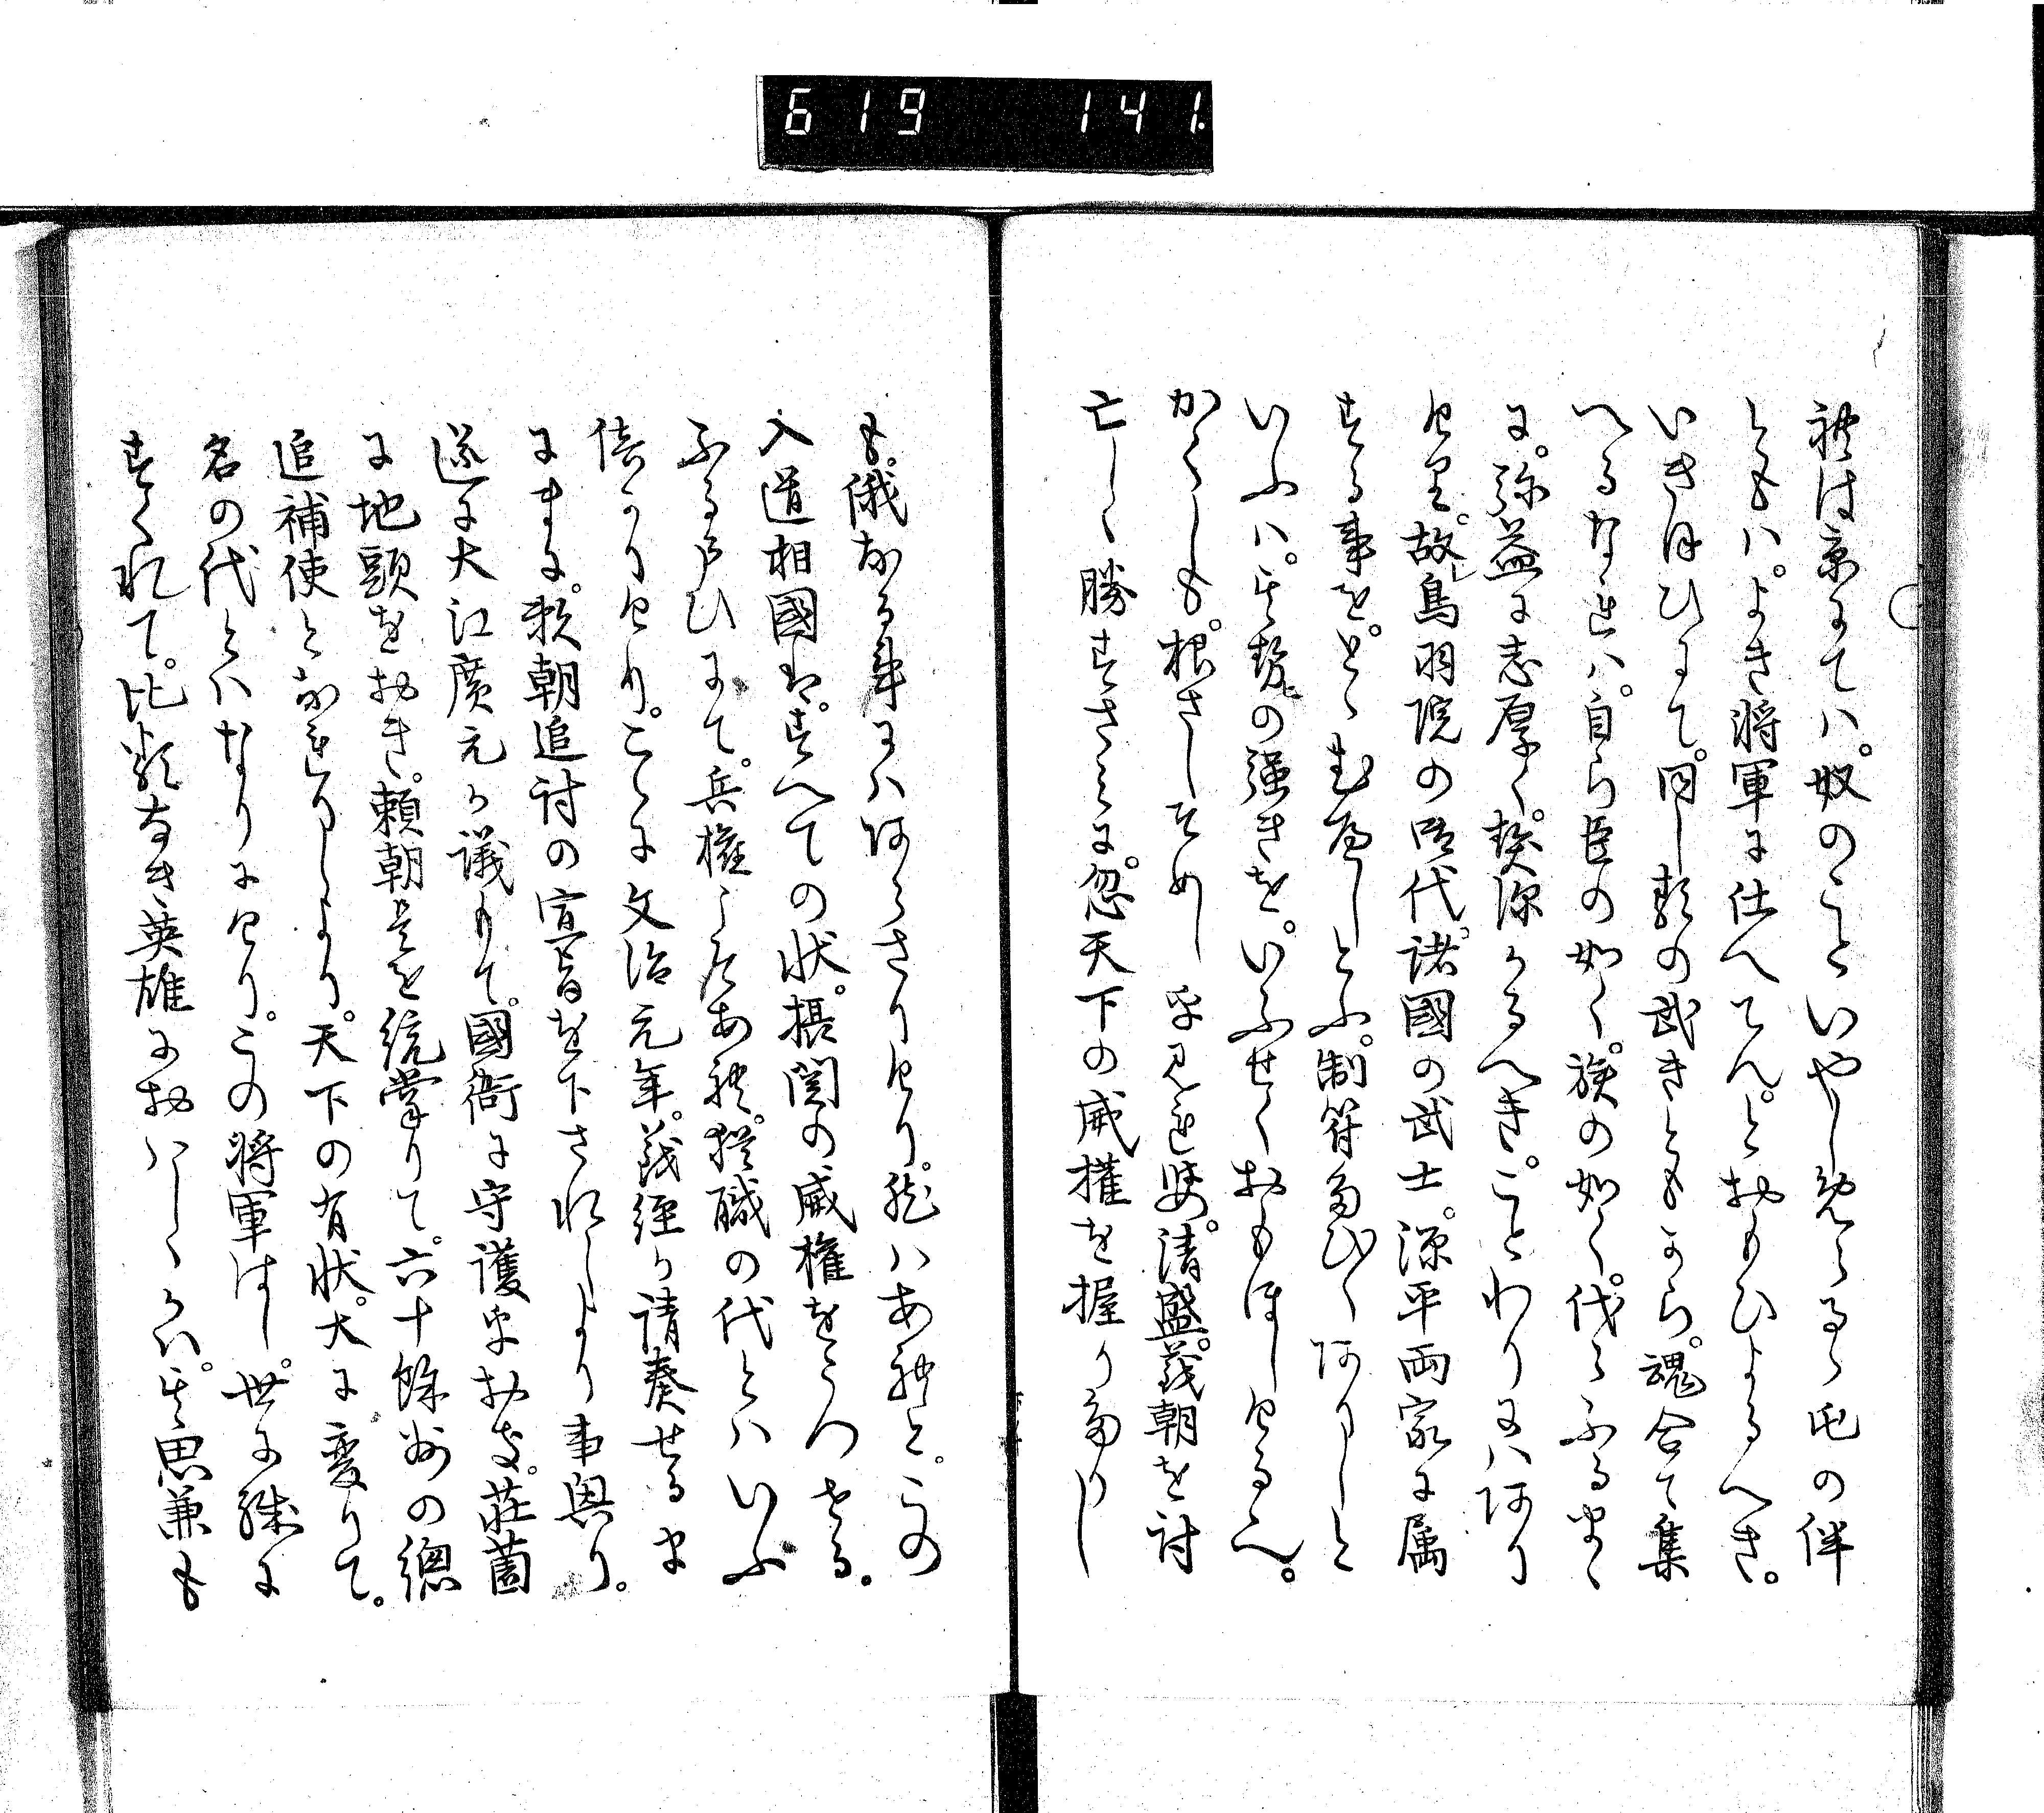 619 141
れは京にては。奴のこといやしめらるゝ氏の伴
ともハ。よき将軍に仕へてんとおもひよるへき。
いきほひにて。同し類の武きともから。魂合て集
へるなれハ。自ら臣の如く。族の如く。代々ふるまゝ
に。弥益に志厚く。契深かるへき。ことわりにハあり
けり。故鳥羽院の御代。諸國の武士。源平両家に属
する事を。とゝむへしとふ。制符たひ〳〵ありしと
いふハ。其勢の強きを。いふせくおもほしける也。
かくしも。根さしそめし乎見れは。清盛。義朝を討
亡し。勝すさみに。忽天下の威権を握りたりし
も。俄なる事にハあらさりけり。然ハあれと。この
入道相國は。すへての状。摂関の威権をうつせる。
ふるまひにて。兵権こそあれ。猶職の代とハいふ
倍かりけり。こゝに文治元年。義経か請奏せるま
にまに。頼朝追討の宣旨を下されしより事興り。
遂に大江廣元か議もて。國衙に守護乎おき。荘園
に地頭をおき。頼朝是を統掌りて。六十餘州の總
追補使となれりしより。天下の有状。大に変りて。
名の代とハなりにけり。この将軍はし。世に殊に
すくれて。比類なき英雄におハしゝかハ。其思兼も